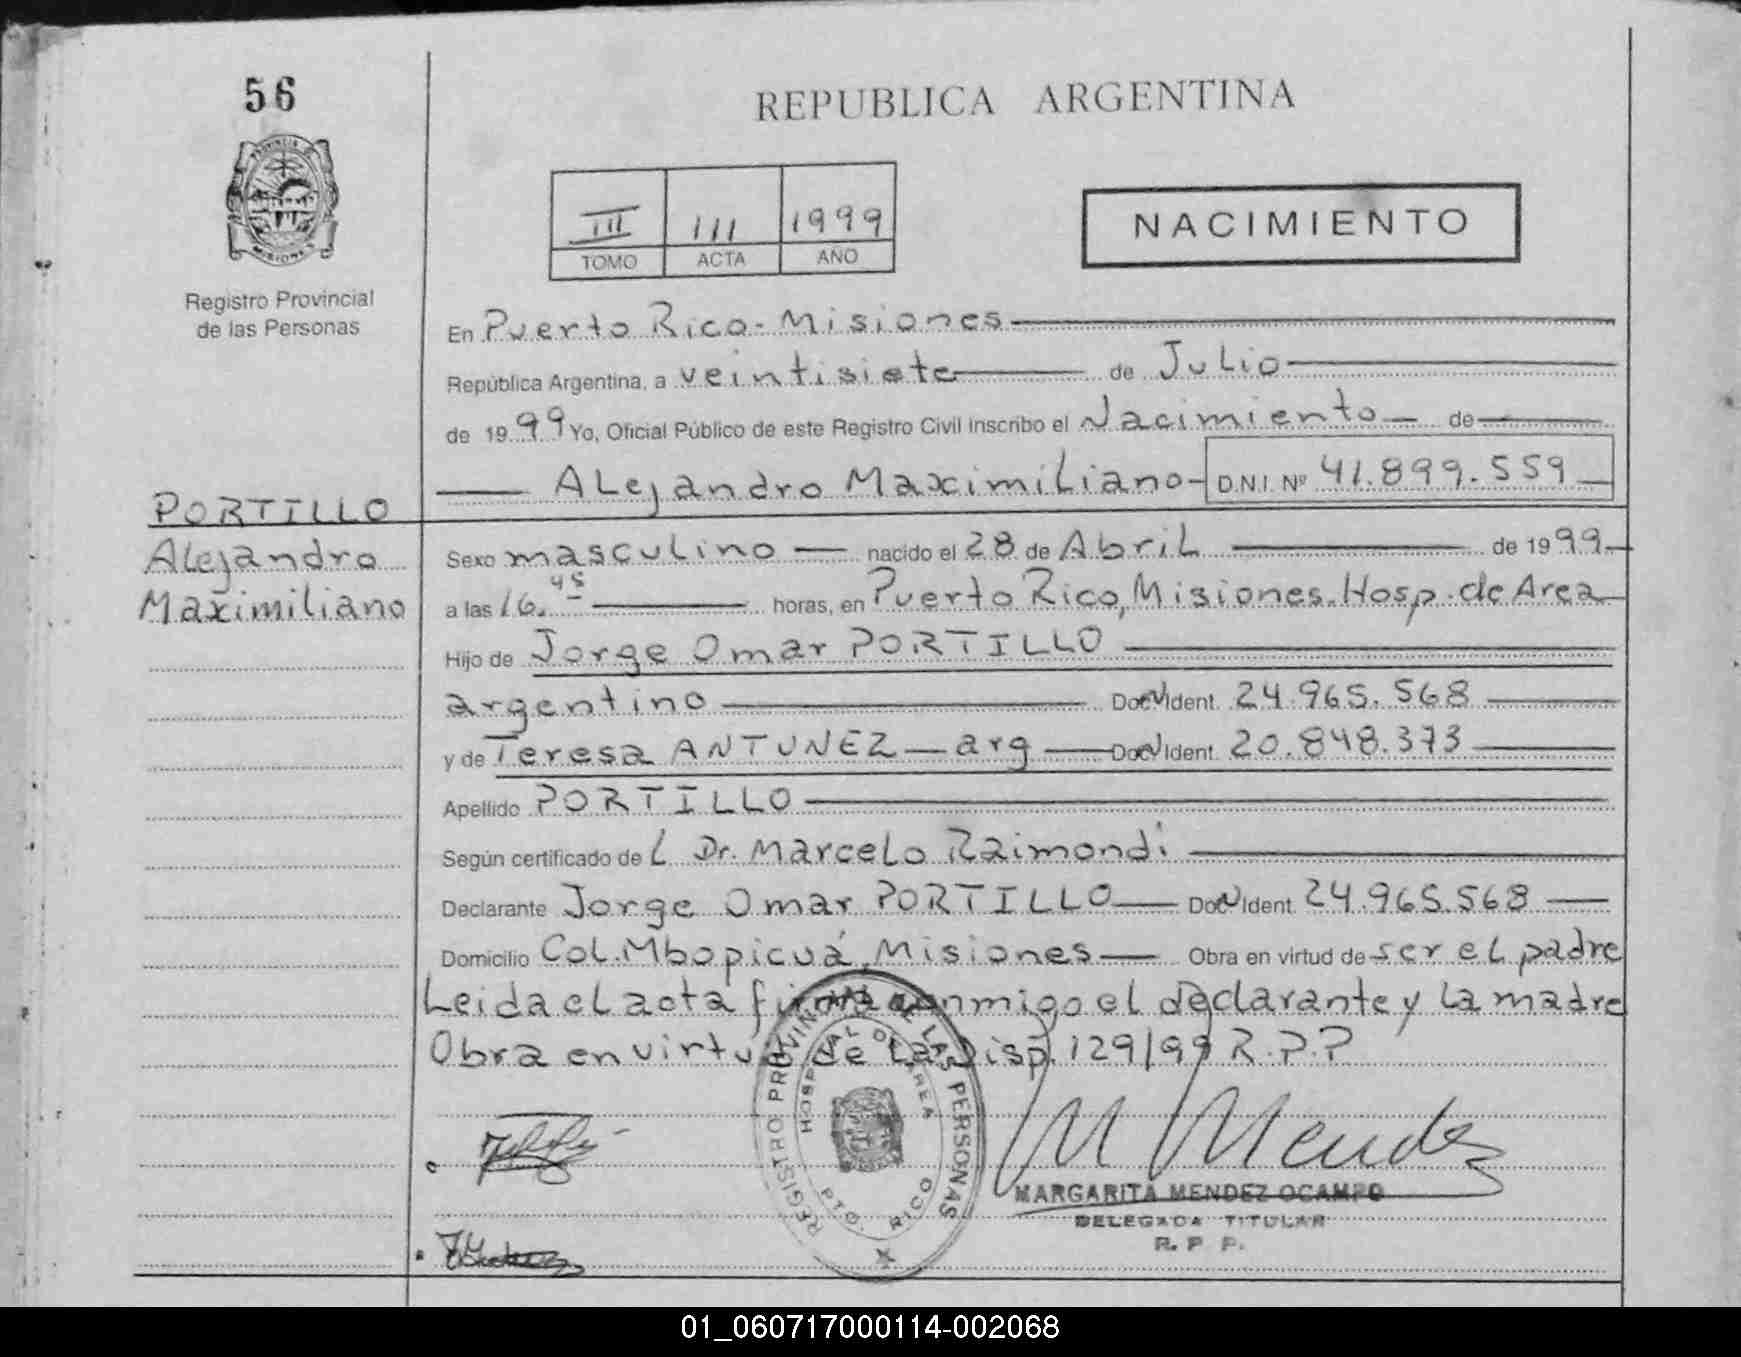 56
REPUBLICA ARGENTINA
III 111 1999
TOMO ACTA AÑO
NACIMIENTO
Registro Provincial
de las Personas
En Puerto Rico - Misiones
República Argentina, a veintisiete de Julio
de 1999 Yo, Oficial Público de este Registro Civil inscribo el Nacimiento de
Alejandro Maximiliano D.N.I. Nº 41.899.559
PORTILLO
Alejandro
Maximiliano
Sexo masculino nacido el 28 de Abril de 1999
a las 16.45 horas, en Puerto Rico, Misiones. Hosp. de Area
Hijo de Jorge Omar PORTILLO
argentino Ident. 24.965.568
y de Teresa ANTUNEZ - arg Ident. 20.848.373
Apellido PORTILLO
Según certificado del Dr. Marcelo Raimondi
Declarante Jorge Omar PORTILLO Ident. 24.965.568
Domicilio Col. Mbopicuá, Misiones Obra en virtud de ser el padre
Leida el acta firma conmigo el declarante y la madre
Obra en virtud de la Disp. 129/99 R.P.P
REGISTRO PROVINCIAL DE LAS PERSONAS
HOSPITAL DE AREA
PTO. RICO
M Mendez
MARGARITA MENDEZ OCAMPO
DELEGADA TITULAR
R. P. P.
01_060717000114-002068